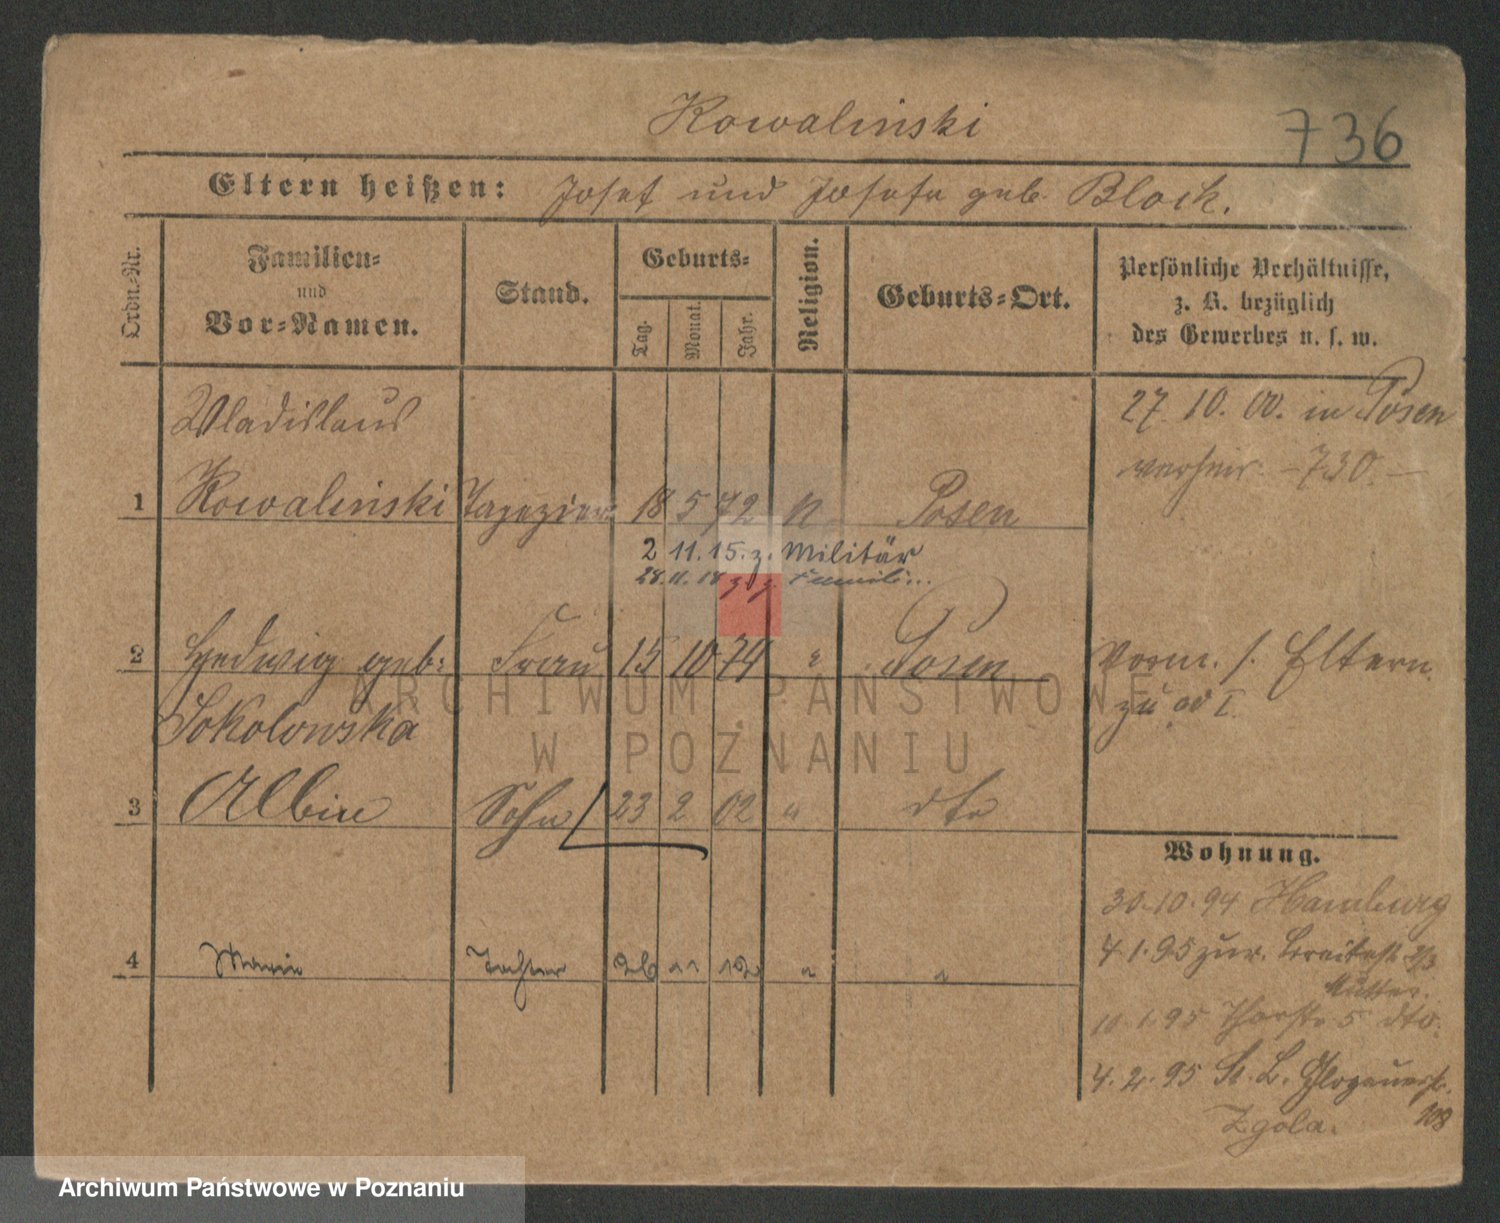 Kowalinski
736
Eltern heißen: Josef und Josefa geb. Block.
Ordn.-Nr.
Familien-
und
Vor-Namen.
Stand.
Geburts-
Tag.
Monat.
Jahr.
Religion.
Geburts-Ort.
Persönliche Verhältnisse,
z. B. bezüglich
des Gewerbes u. s. w.
Wladislaus
27. 10. 00. in Posen
verheir. -730.-
1 Kowalinski Tapezier 18 5 72 Posen
2 11. 15. z. Militär
28. 11. 18 z. Famili...
2 Hedwig geb: Frau 15 10 74 " Posen
Vorm. s. Eltern
zu ad I.
Sokolowska
3 Albin Sohn 23 2 02 " dto
Wohnung.
30.10.94 Hamburg
4 Marie Tochter 26 11 12 " "
4.1.95 zur. Breitestr.
Mutter.
10.1.95 5 dto.
4.2.95 St. L. Glogauerstr.
108
Zgola.
ARCHIWUM PAŃSTWOWE
W POZNANIU
Archiwum Państwowe w Poznaniu